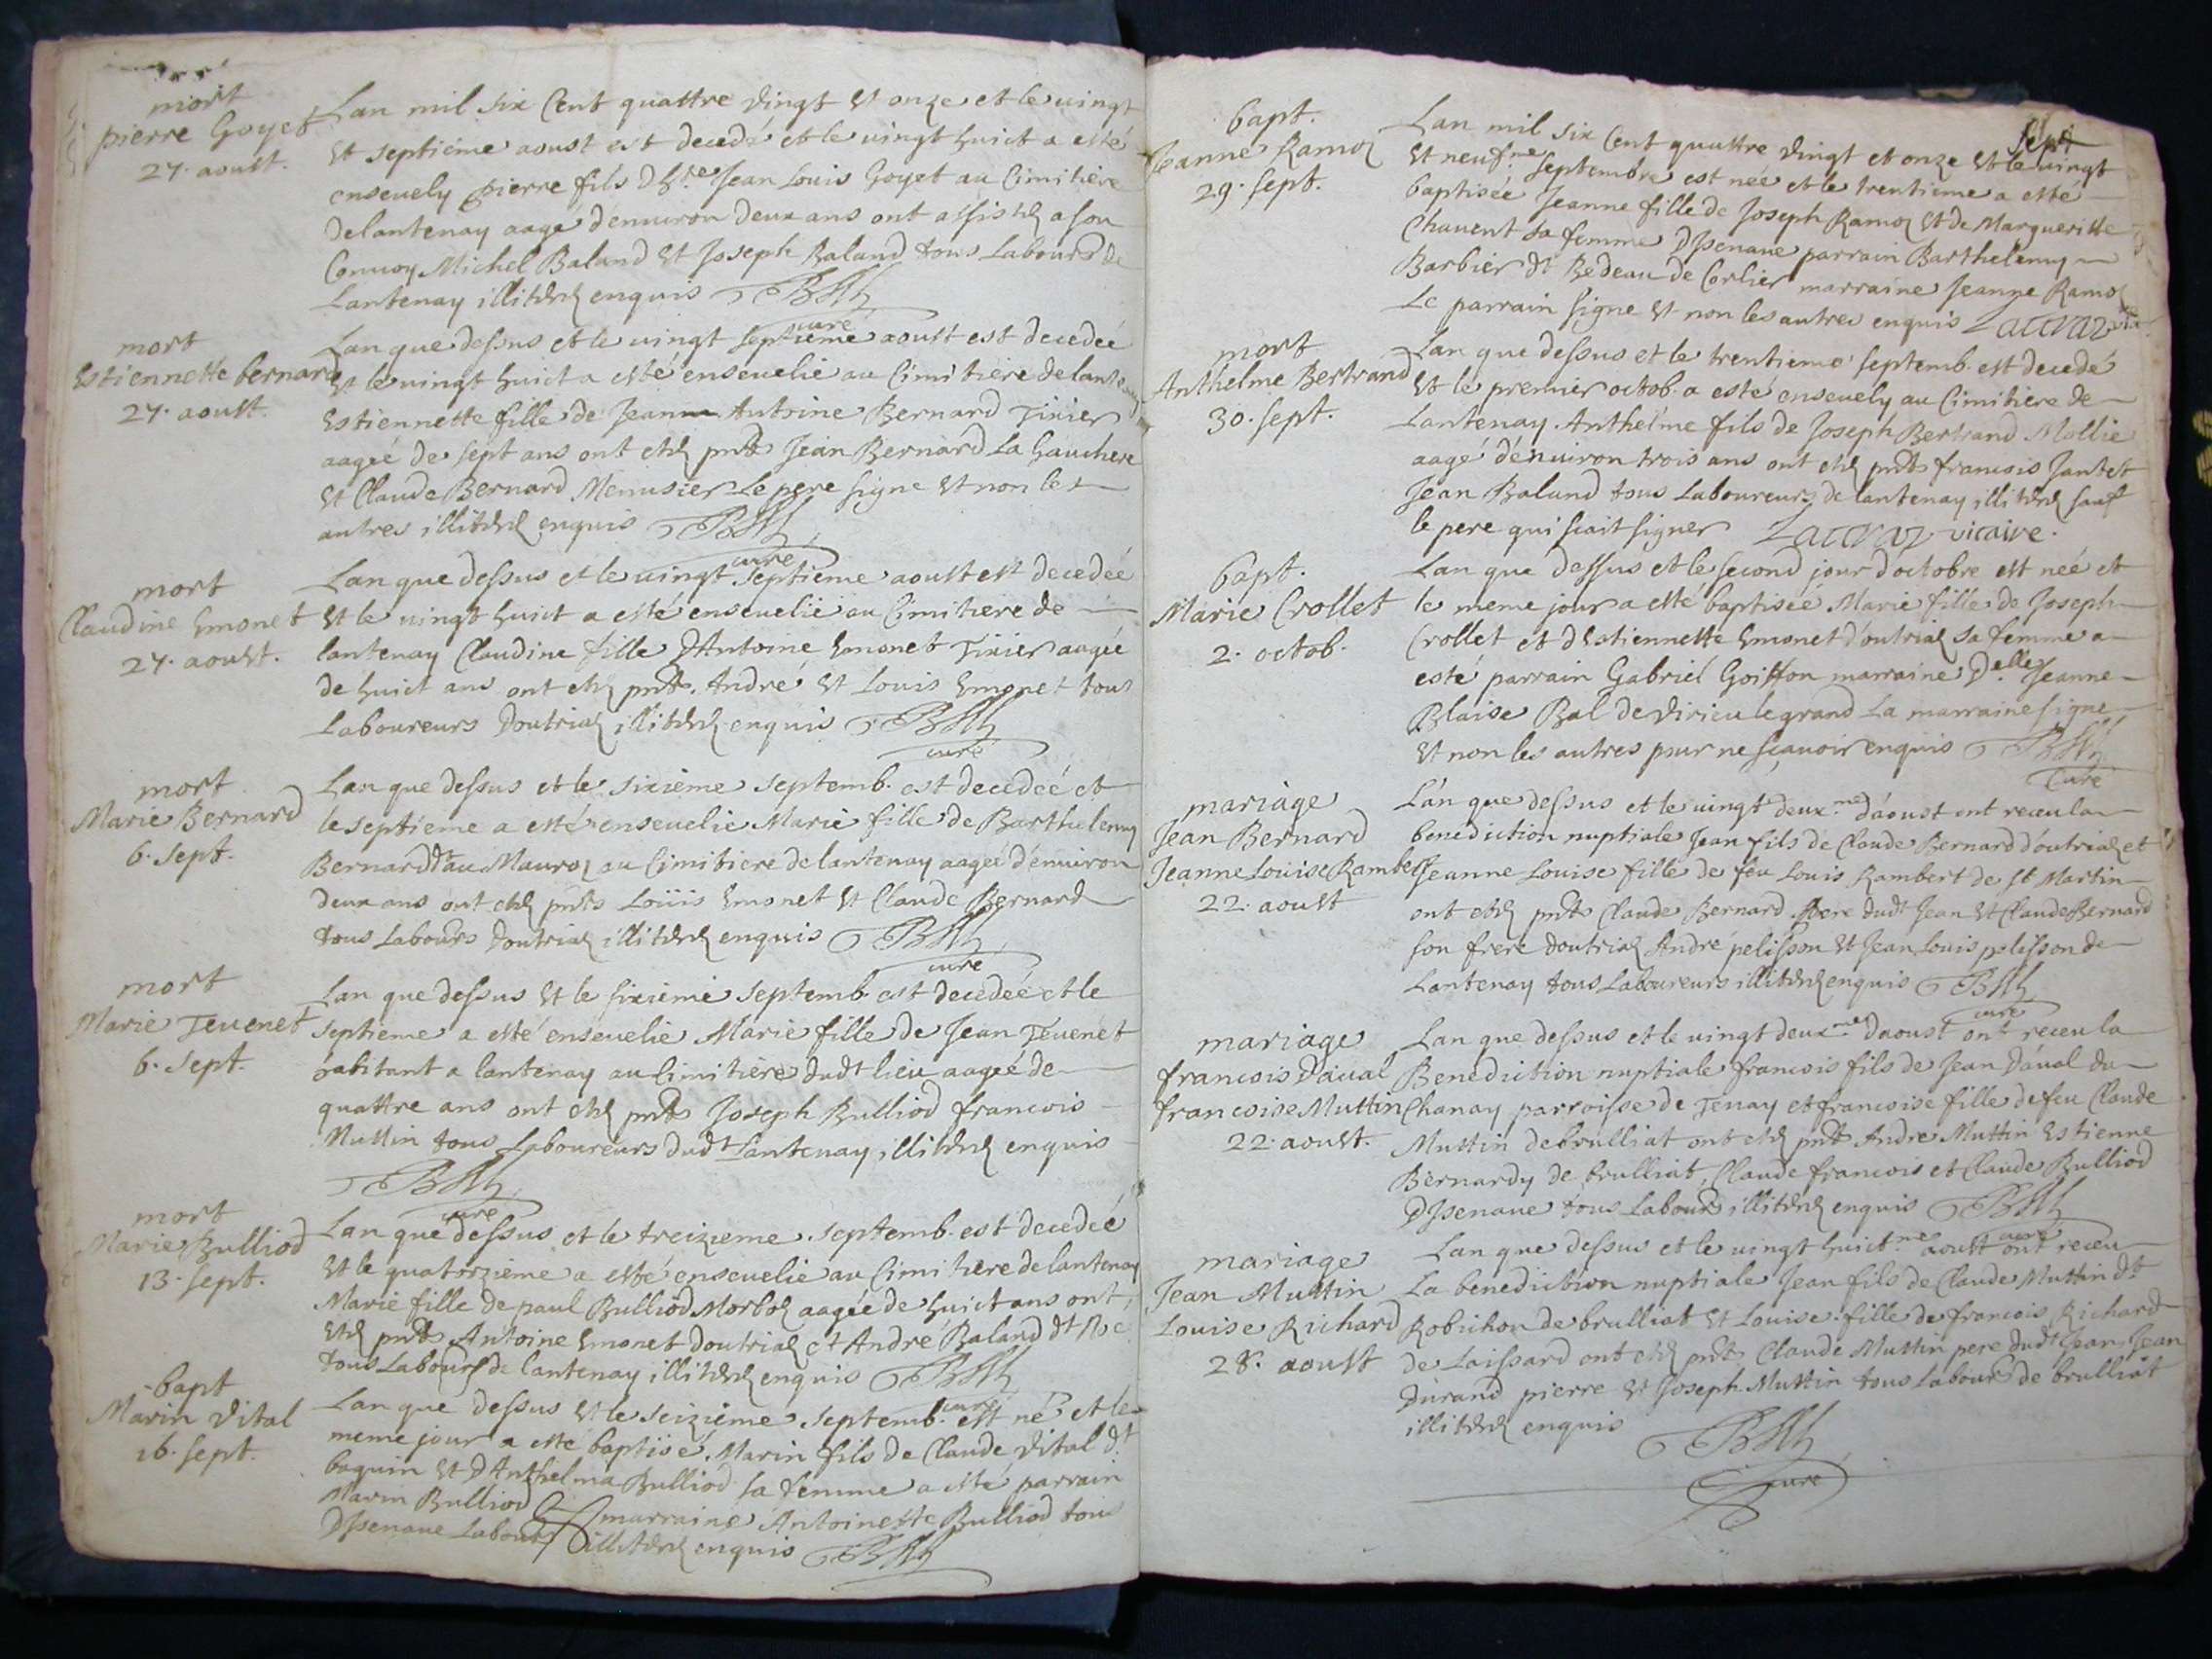 mort
pierre Goyet
27. aoust.
Lan mil six Cent quattre vingt et onze et le vingt
et septieme aoust est decedé et le vingt huict a esté
enseuely pierre fils Jean Louis Goyet au Cimitiere
de lantenay aagé d'enuiron deux ans ont assisté a son
Conuoy Michel Baland et Joseph Baland tous Labours de
Lantenay enquis
curé
mort
Estiennette bernard
27. aoust.
Lan que dessus et le vingt septieme aoust est decedeé
et le vingt huict a esté enseuelie au Cimitiere de lantenay
Estiennette fille de Jean Antoine Bernard Tixier
aageé de sept ans ont Jean Bernard La Gauchere
et Claude Bernard Menusier Le pere signe et non les
autres enquis
curé
mort
Claudine Emonet
27. aoust.
Lan que dessus et le vingt septieme aoust est decedeé
et le vingt huict a esté enseuelie au Cimitiere de
lantenay Claudine fille D'Antoine Emonet Tixier aageé
de huict ans ont André et Louis Emonet tous
Laboureurs Doutriaz enquis
curé
mort
Marie Bernard
6. sept.
Lan que dessus et le sixieme septemb. est decedeé et
le septieme a esté enseuelie Marie fille de Barthelemy
Bernard dt au Mauroz au Cimitiere de lantenay aageé d'enuiron
deux ans ont Loüis Emonet et Claude Bernard
tous Labours Doutriaz enquis
curé
mort
Marie Teuenet
6. sept.
Lan que dessus et le sixieme septemb. est decedeé et le
septieme a esté enseuelie Marie fille de Jean Téuenet
habitant a lantenay au Cimitiere dudt lieu aageé de
quattre ans ont Joseph Bulliod francois
Muttin tous Laboureurs dudt Lantenay enquis
curé
mort
Marie Bulliod
13. sept.
Lan que dessus et le treizieme septemb. est decedeé
et le quatorzieme a esté enseuelie au Cimitiere de lantenay
Marie fille de paul Bulliod aageé de huict ans ont
Antoine Emonet doutriaz et André Baland dt
tous Labours de lantenay enquis
curé
bapt
Marin vital
16. sept.
Lan que dessus et le seizieme septemb. est né et le
meme jour a esté baptisé Marin fils de Claude vital dt
baquin et D'Anthelma Bulliod sa femme a esté parrain
Marin Bulliod marraine Antoinette Bulliod tous
D'Isenaue Labours enquis
bapt.
Jeanne Ramoz
29. sept.
Lan mil six Cent quattre vingt et onze et le vingt
et neufme septembre est neé et le trentieme a esté
baptiseé Jeanne fille de Joseph Ramoz et de Margueritte
Chauent sa femme D'Isenaue parrain Barthelemy
Barbier dt Bedeau de Corlier marraine Jeanne Ramoz
Le parrain signe et non les autres enquis
mort
Anthelme Bertrand
30. sept.
Lan que dessus et le trentieme septemb. est decedé
et le premier octob. a esté enseuely au Cimitiere de
Lantenay Anthelme fils de Joseph Bertrand Mollie
aagé d'enuiron trois ans ont francois Jantet
Jean Baland tous Laboureurs de lantenay sauf
le pere qui scait signer vicaire.
bapt.
Marie Crollet
2. octob.
Lan que dessus et le second jour d'octobre est neé et
le meme jour a esté baptiseé Marie fille de Joseph
Crollet et d'Estiennette Emonet d'outriaz sa femme a
esté parrain Gabriel Goiffon marraine Delle Jeanne
Blaise Bal de virieu le grand La marraine signe
et non les autres pour ne sçauoir enquis
Curé
mariage
Jean Bernard
Jeanne Louise Rambert
22. aoust
Lan que dessus et le vingt deuxme d'aoust ont receu la
benediction nuptiale Jean fils de Claude Bernard d'outriaz et
Jeanne Louise fille de feu Louis Rambert de st Martin
ont Claude Bernard Pere dudt Jean et Claude Bernard
son frere doutriaz André pelisson et Jean Louis pelisson de
Lantenay tous Laboureurs enquis
curé
mariage
francois Daual
francoise Muttin
22. aoust.
Lan que dessus et le vingt deuxme Daoust ont receu la
Benediction nuptiale francois fils de Jean Daual du
Chanay parroisse de Tenay et francoise fille de feu Claude
Muttin de brulliat ont André Muttin Estienne
Bernardy de brulliat, Claude francois et Claude Bulliod
D'Isenaue tous Labours enquis
curé
mariage
Jean Muttin
Louise Richard
28. aoust
Lan que dessus et le vingt huictme aoust ont receu
La benediction nuptiale Jean fils de Claude Muttin dt
Robichon de brulliat et Louise fille de francois Richard
de Laissard ont Claude Muttin pere dudt Jean, Jean
Durand pierre et Joseph Muttin tous Labours de brulliat
enquis
curé